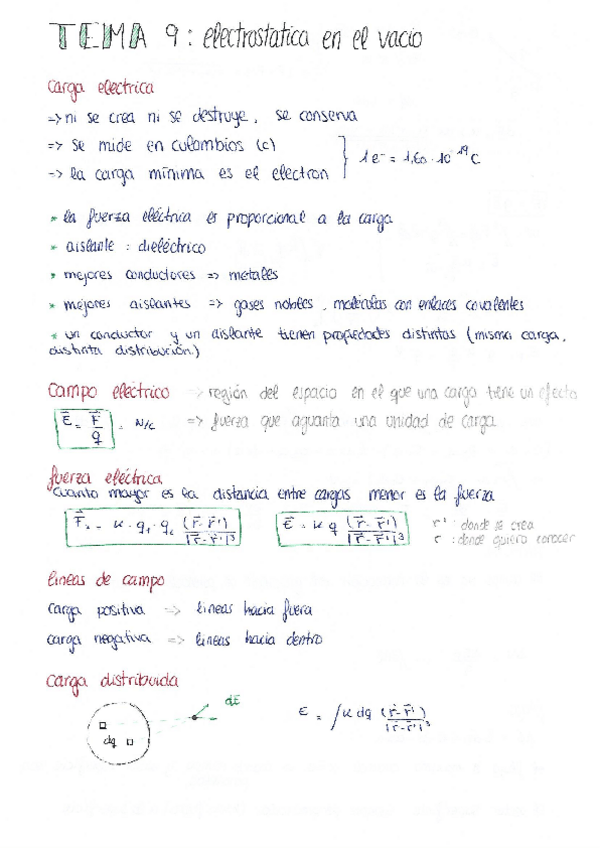 TEMA 9: electrostatica en el vacio
carga electrica
=> ni se crea ni se destruye, se conserva
=> se mide en culombios (c)
=> la carga mínima es el electron
1 e⁻ = 1,60 · 10⁻¹⁹ C
* la fuerza eléctrica es proporcional a la carga
* aislante : dieléctrico
* mejores conductores => metales
* mejores aislantes => gases nobles, moléculas con enlaces covalentes
* un conductor y un aislante tienen propiedades distintas (misma carga,
distinta distribución)
Campo electrico => región del espacio en el que una carga tiene un efecto
E⃗ = F⃗/q = N/C => fuerza que aguanta una unidad de carga
fuerza eléctrica
cuanto mayor es la distancia entre cargas menor es la fuerza
F⃗₂ = K · q₁ · q₂ (r⃗ - r⃗')/|r⃗ - r⃗'|³ E⃗ = K q (r⃗ - r⃗')/|r⃗ - r⃗'|³ r' : donde se crea
r : donde quiero conocer
lineas de campo
carga positiva => lineas hacia fuera
carga negativa => lineas hacia dentro
carga distribuida
dq
dE
E = ∫ K dq (r⃗ - r⃗')/|r⃗ - r⃗'|³